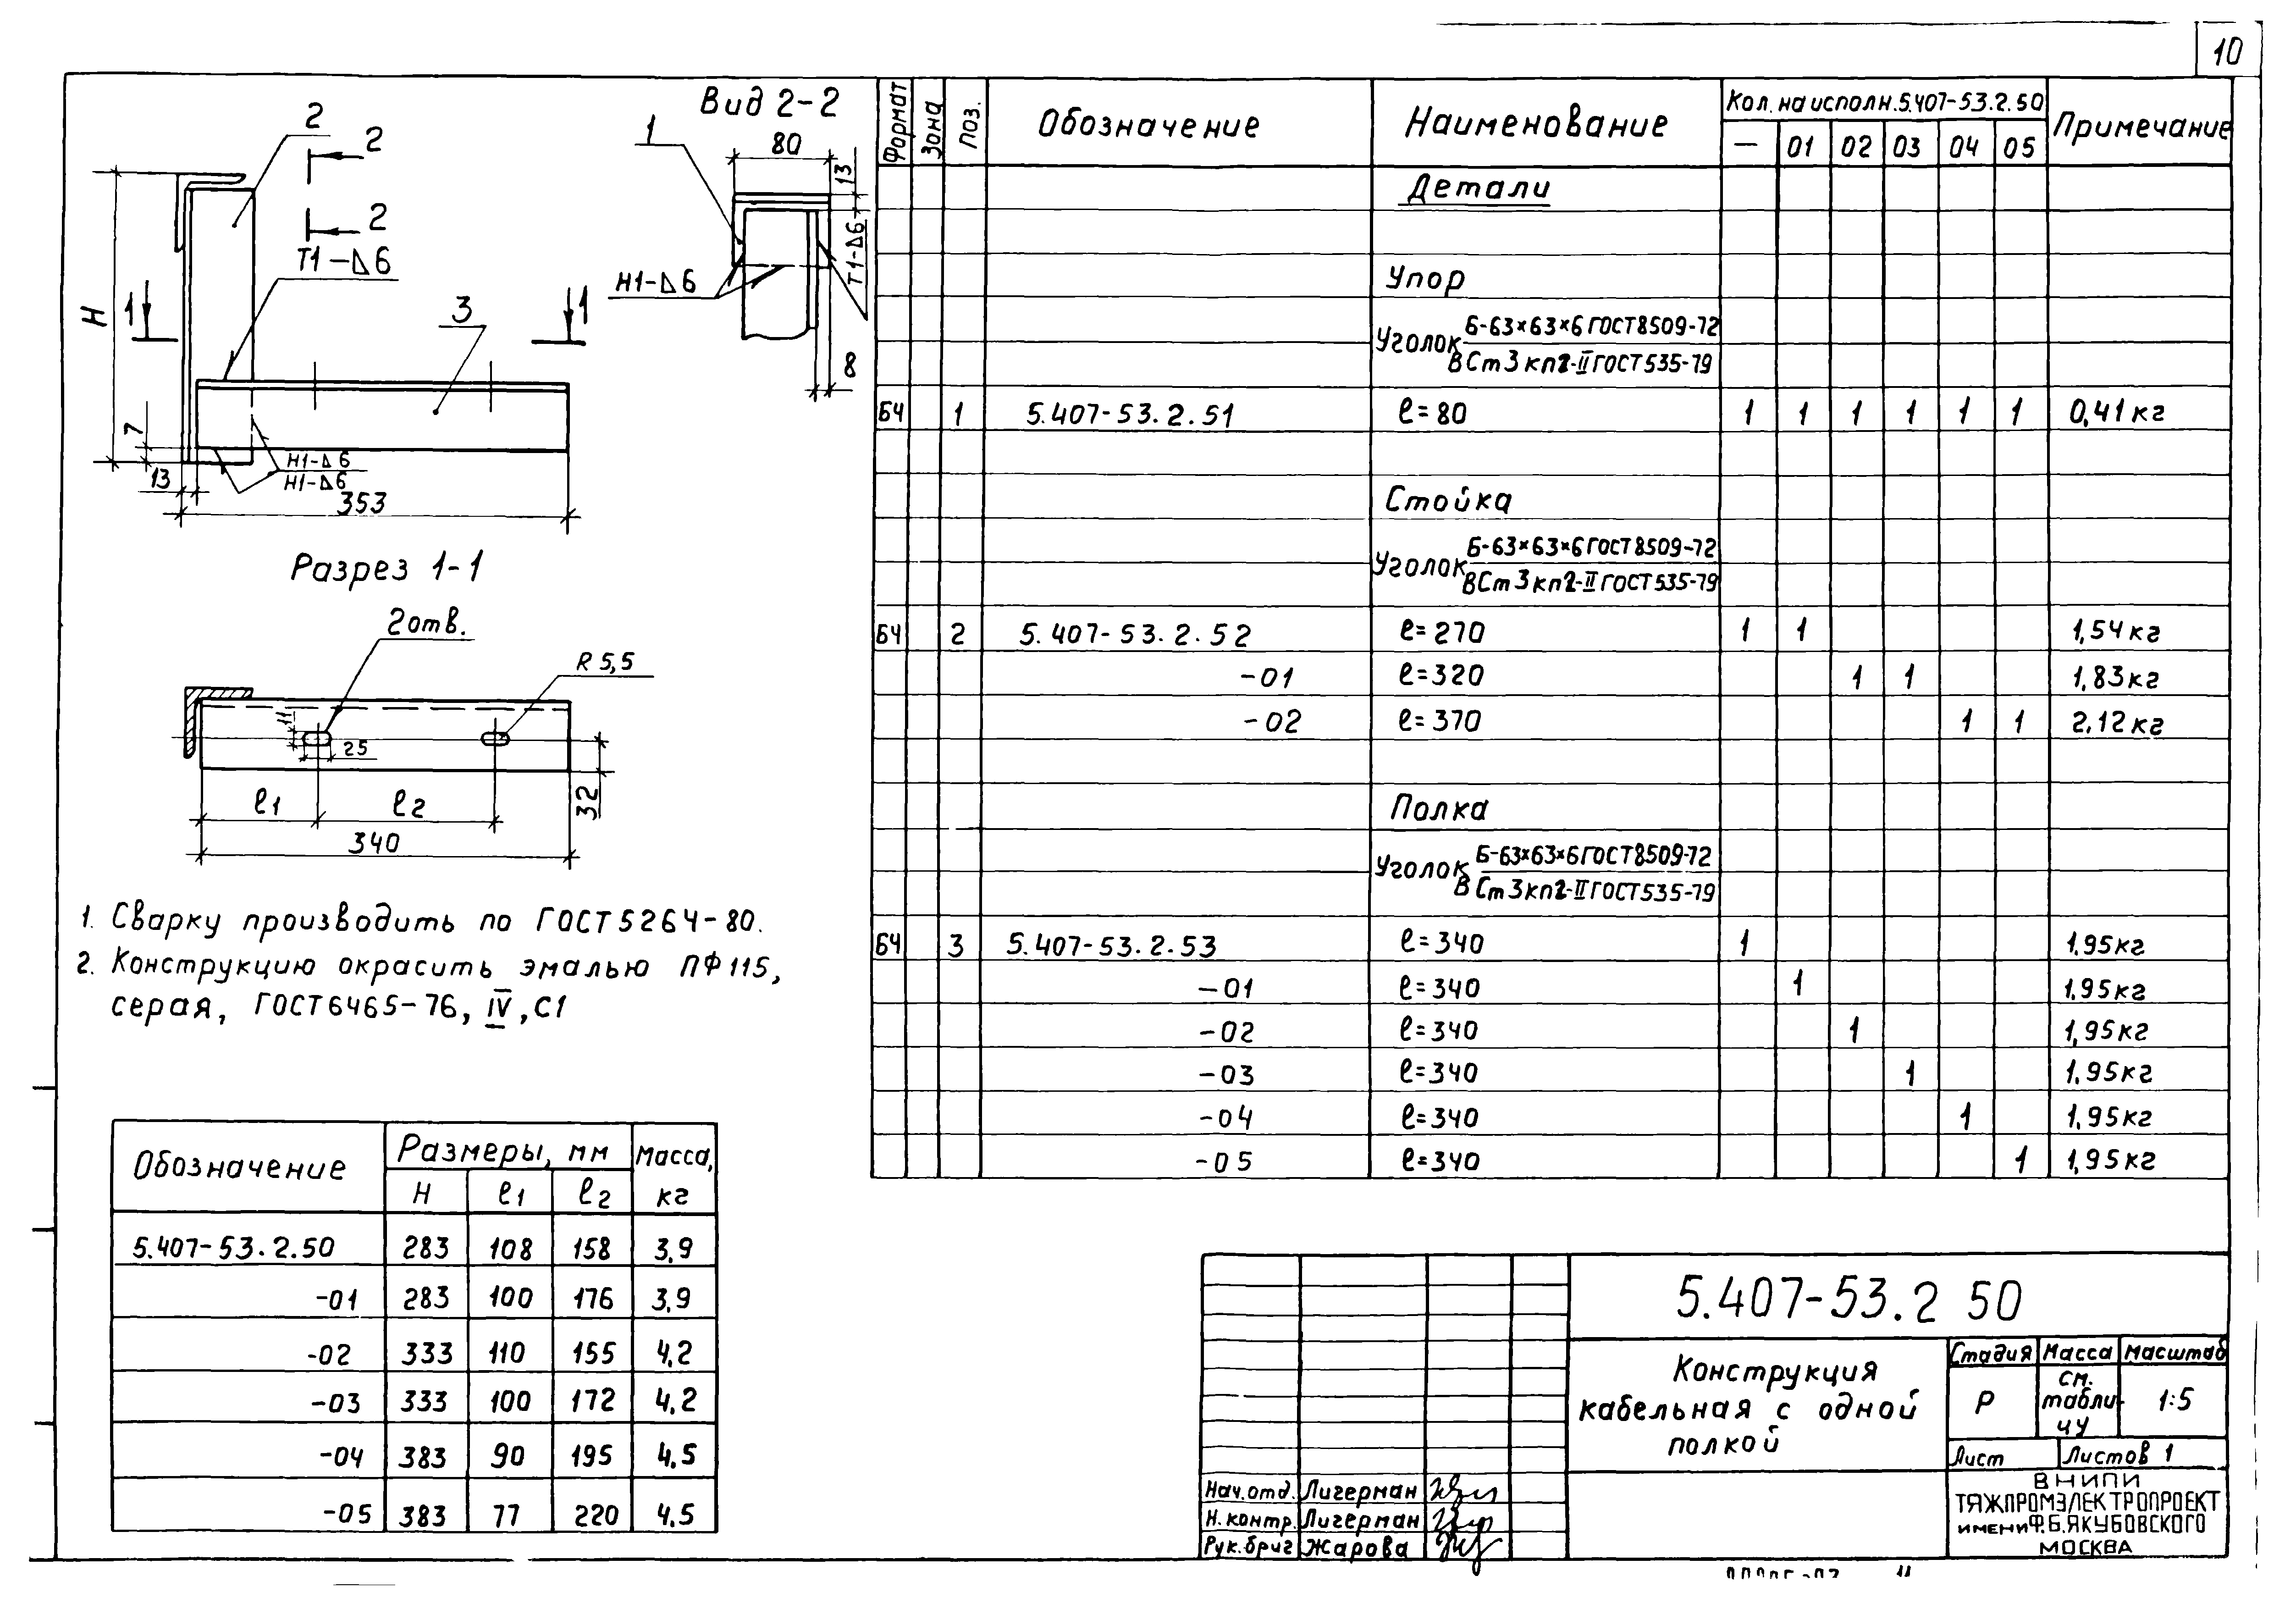 10
Вид 2-2
2
2
2
Т1-Δ6
1
1
3
Н
7
13
Н1-Δ6
Н1-Δ6
353
1
80
13
Н1-Δ6
Т1-Δ6
8
Разрез 1-1
2 отв.
R 5,5
11
25
ℓ1
ℓ2
32
340
1. Сварку производить по ГОСТ 5264-80.
2. Конструкцию окрасить эмалью ПФ 115,
серая, ГОСТ 6465-76, IV, С1
Обозначение Размеры, мм Масса, кг
Н ℓ1 ℓ2
5.407-53.2.50 283 108 158 3,9
-01 283 100 176 3,9
-02 333 110 155 4,2
-03 333 100 172 4,2
-04 383 90 195 4,5
-05 383 77 220 4,5
Формат Зона Поз. Обозначение Наименование Кол. на исполн. 5.407-53.2.50 Примечание
— 01 02 03 04 05
Детали
Упор
Уголок Б-63×63×6 ГОСТ 8509-72
ВСт3кп2-II ГОСТ 535-79
БЧ 1 5.407-53.2.51 ℓ=80 1 1 1 1 1 1 0,41 кг
Стойка
Уголок Б-63×63×6 ГОСТ 8509-72
ВСт3кп2-II ГОСТ 535-79
БЧ 2 5.407-53.2.52 ℓ=270 1 1 1,54 кг
-01 ℓ=320 1 1 1,83 кг
-02 ℓ=370 1 1 2,12 кг
Полка
Уголок Б-63×63×6 ГОСТ 8509-72
ВСт3кп2-II ГОСТ 535-79
БЧ 3 5.407-53.2.53 ℓ=340 1 1,95 кг
-01 ℓ=340 1 1,95 кг
-02 ℓ=340 1 1,95 кг
-03 ℓ=340 1 1,95 кг
-04 ℓ=340 1 1,95 кг
-05 ℓ=340 1 1,95 кг
5.407-53.2 50
Конструкция
кабельная с одной
полкой
Стадия Масса Масштаб
Р см. таблицу 1:5
Лист Листов 1
ВНИПИ
ТЯЖПРОМЭЛЕКТРОПРОЕКТ
имени Ф.Б.ЯКУБОВСКОГО
МОСКВА
Нач. отд. Лигерман
Н. контр. Лигерман
Рук. бриг Жарова